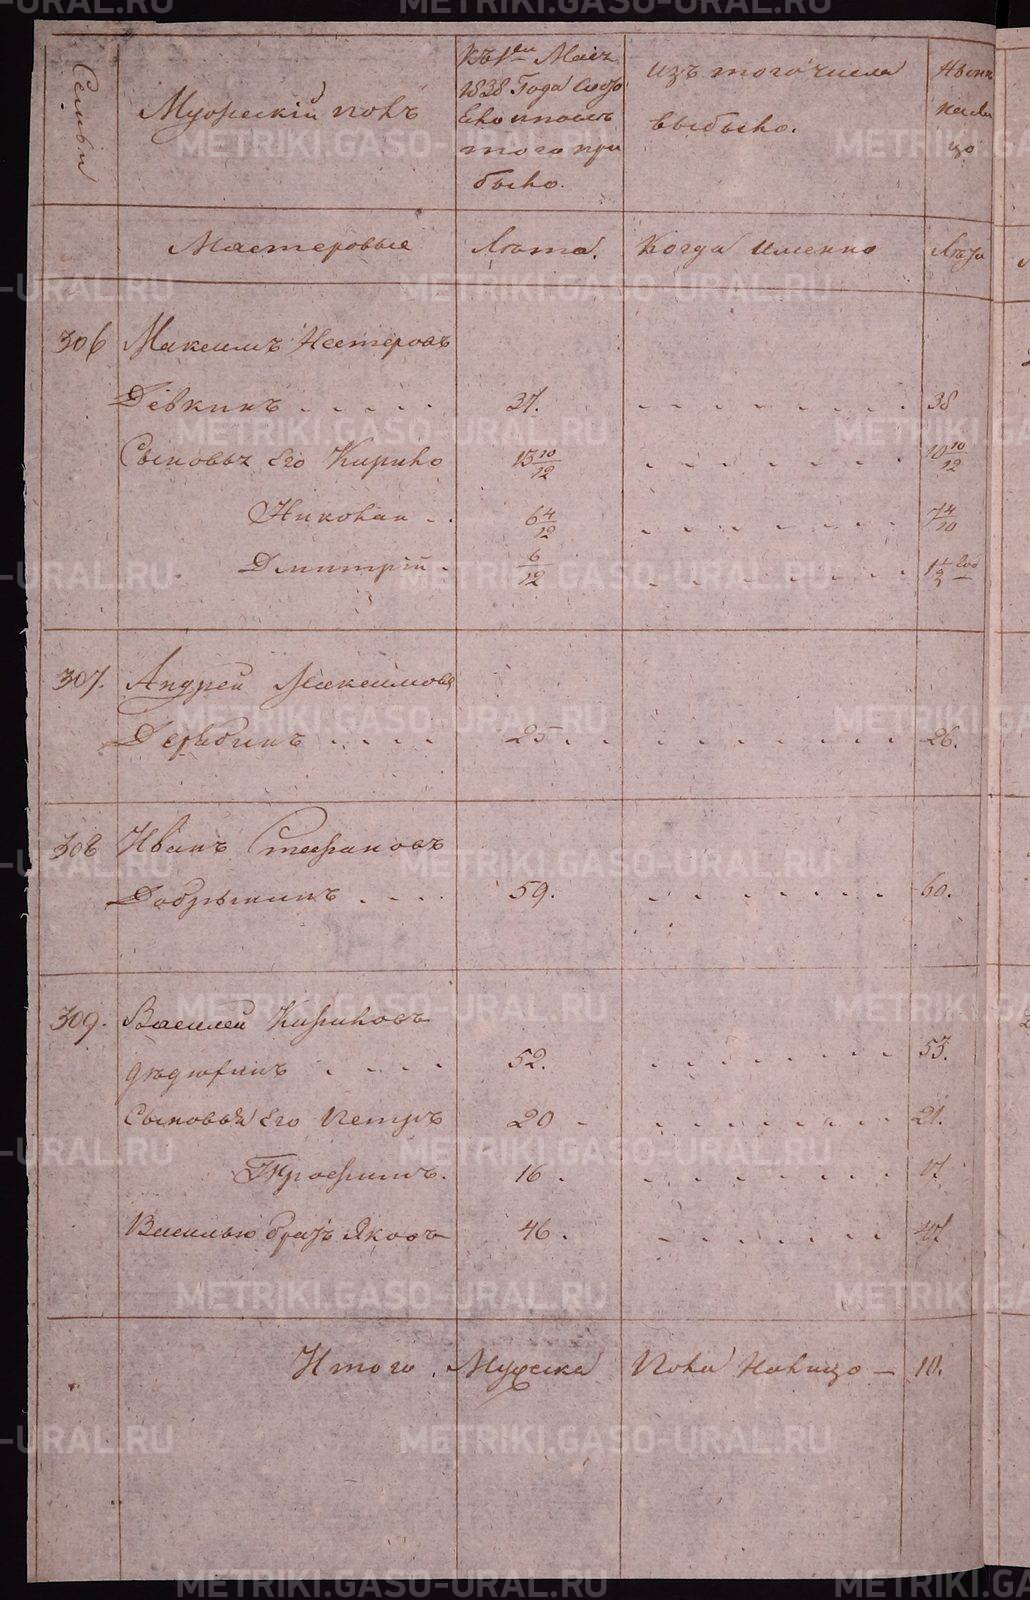 Семьи
Мужескій полъ
Къ 1му Маія
1838 Года состо
яло и после
того при
было.
изъ того числа
выбыло.
Нын
на ли
цо
Мастеровые Лѣта. Когда именно Лѣта
306 Максимъ Нестеровъ
Дѣвкинъ 37. 38
Сыновья Его Кирило 10/12 10/12
Николай 6 4/12 7
Дмитрій 6/12
307. Андрей Максимовъ
Дерябинъ 25. 26.
308 Иванъ Стефановъ
Добрынинъ 59. 60.
309. Василей Кириловъ
Дѣдюхинъ 52. 53.
Сыновья Его Петръ 20 21.
Трофимъ. 16. 17
Василью братъ Яковъ 46. 47
Итого Мужеска Пола Налицо — 10.
METRIKI.GASO-URAL.RU